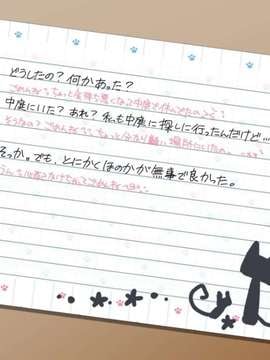 どうしたの？何かあった？
ごめんね、ちょっと気持ち悪くなって中庭で休んでたの
中庭にいた？あれ？私も中庭に探しに行ったんだけど…
そうなの？ごめんね、ちょっと分かり難い場所にいたから
そっか。でも、とにかくほのかが無事で良かった。
うん、心配かけちゃってごめんね